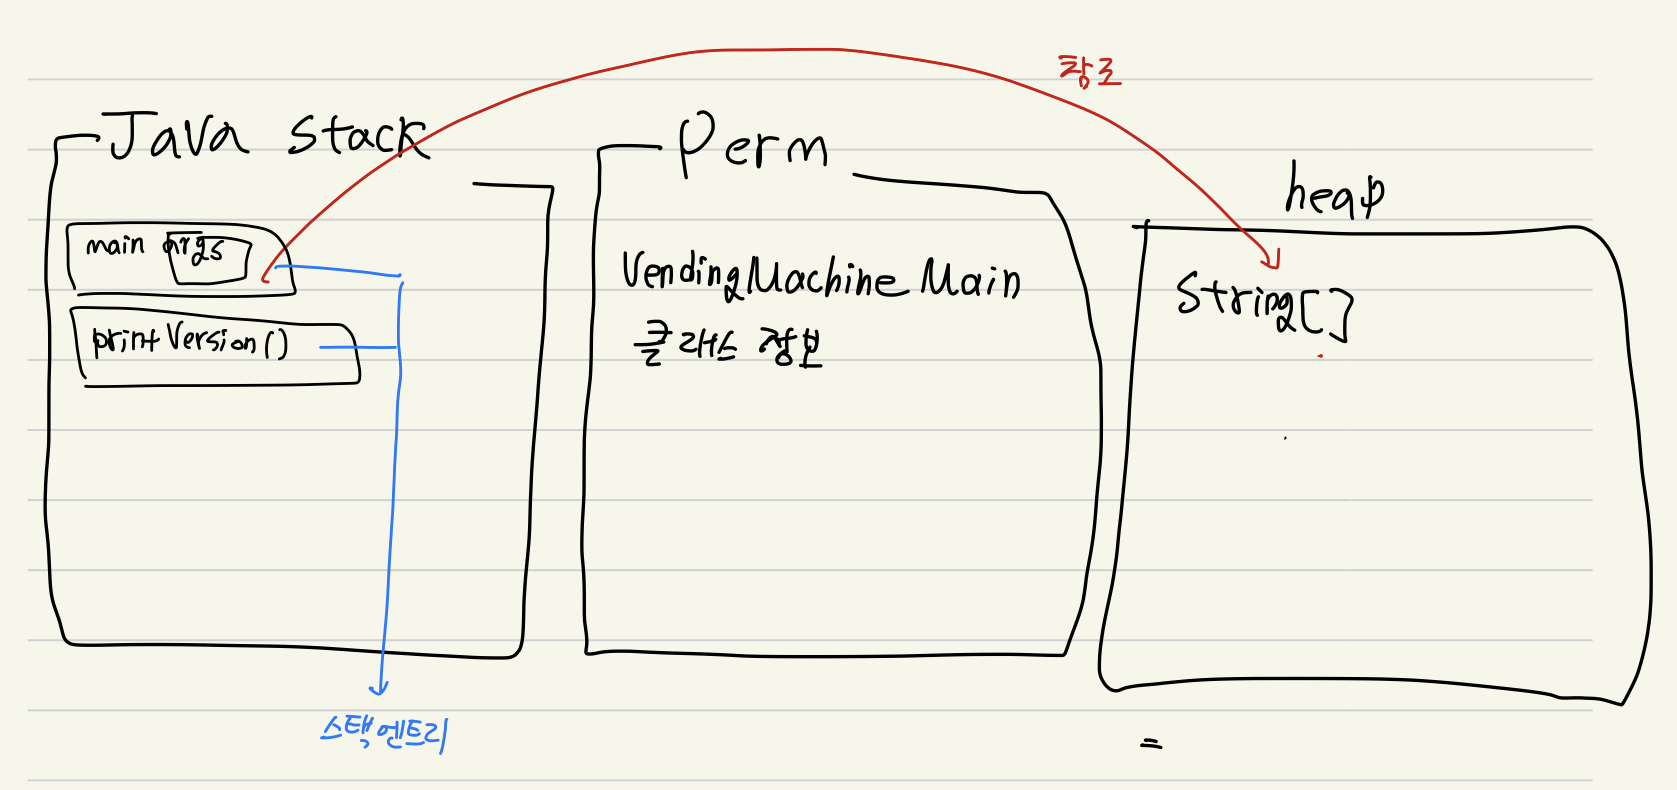 참조
Java stack
main args
printVersion()
스택 엔트리
Perm
VendingMachine Main
클래스 정보
heap
String[]
=